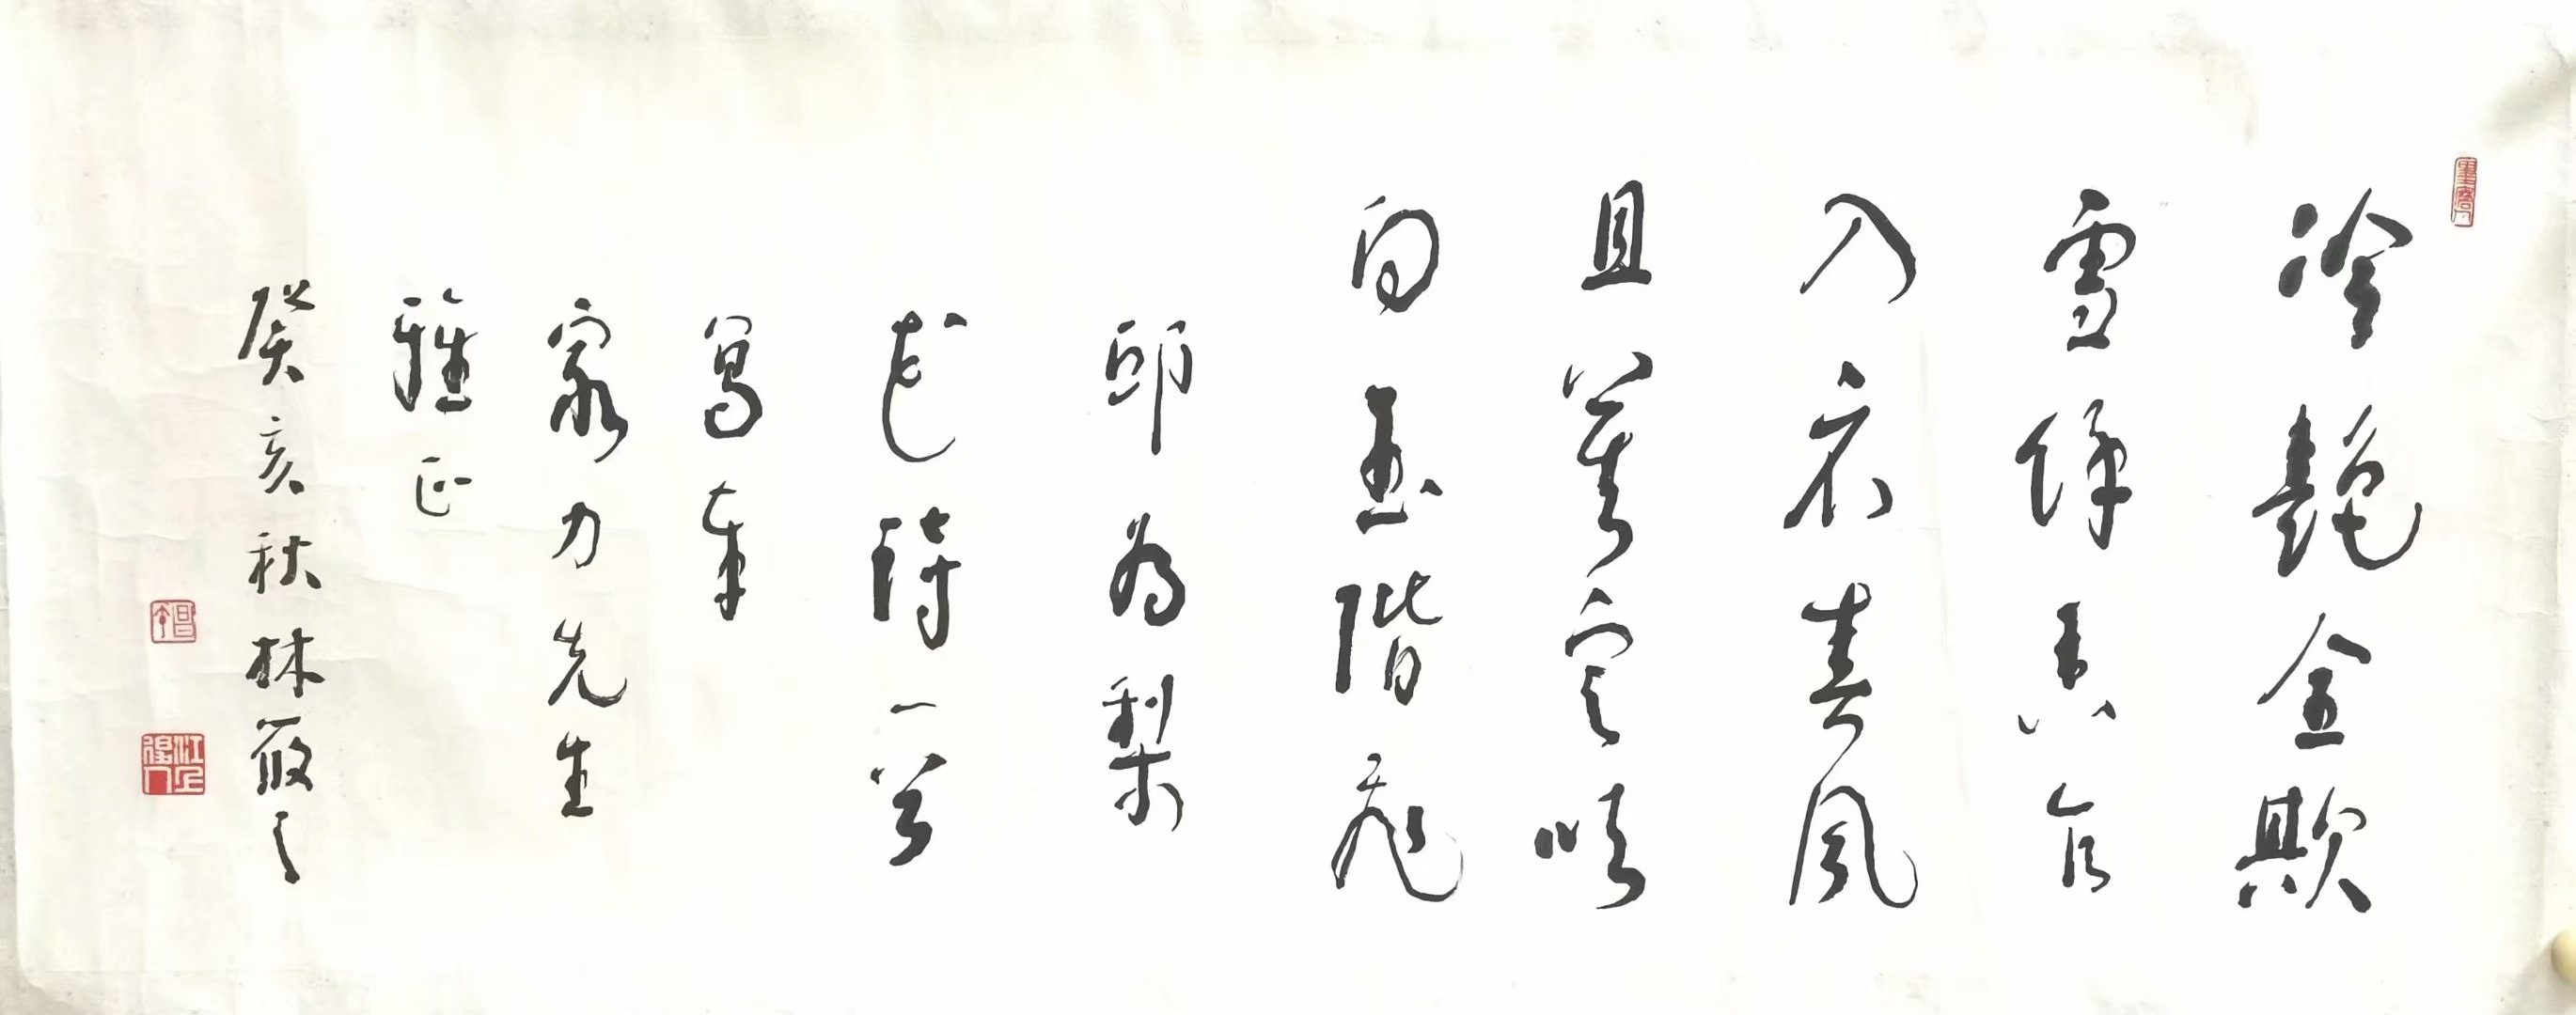 冷艷全欺
雪餘香乍
入衣春風
且莫定吹
向玉階飛
邱為梨
花詩一首
寫奉
家力先生
雅正
癸亥秋林筱之
昌午